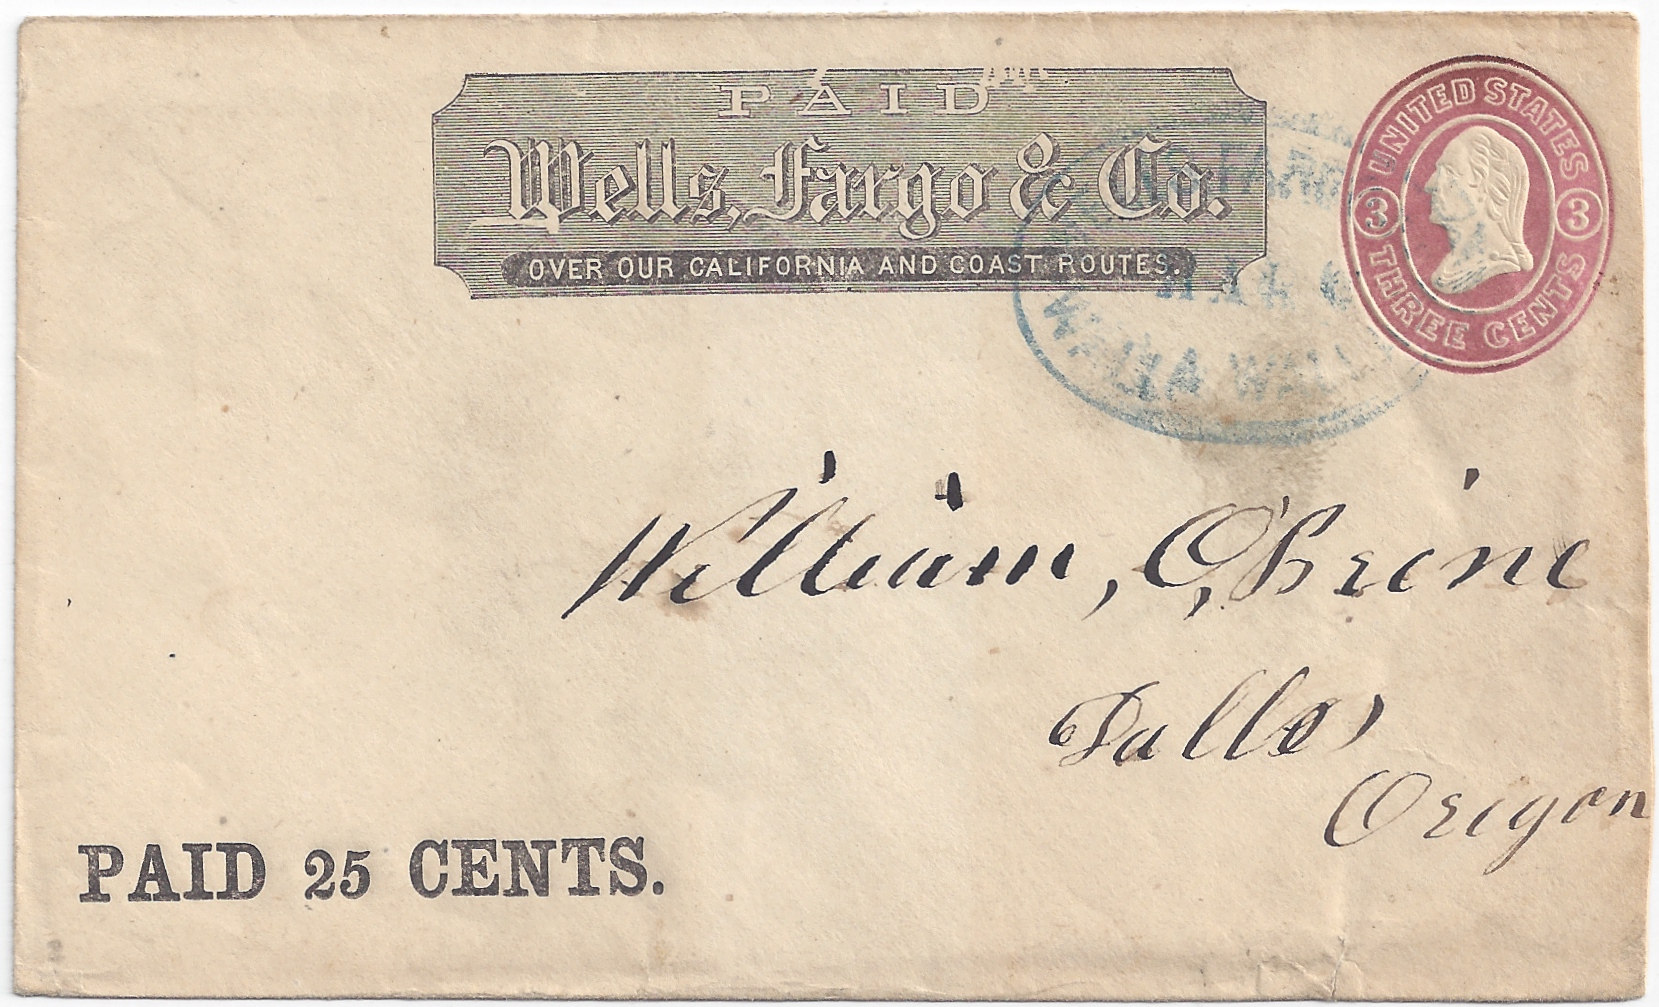 PAID
Wells, Fargo & Co.
OVER OUR CALIFORNIA AND COAST ROUTES.
UNITED STATES
3 3
THREE CENTS
FARGO
WALLA WALLA
William, O'Breine
Dalles
Oregon
PAID 25 CENTS.